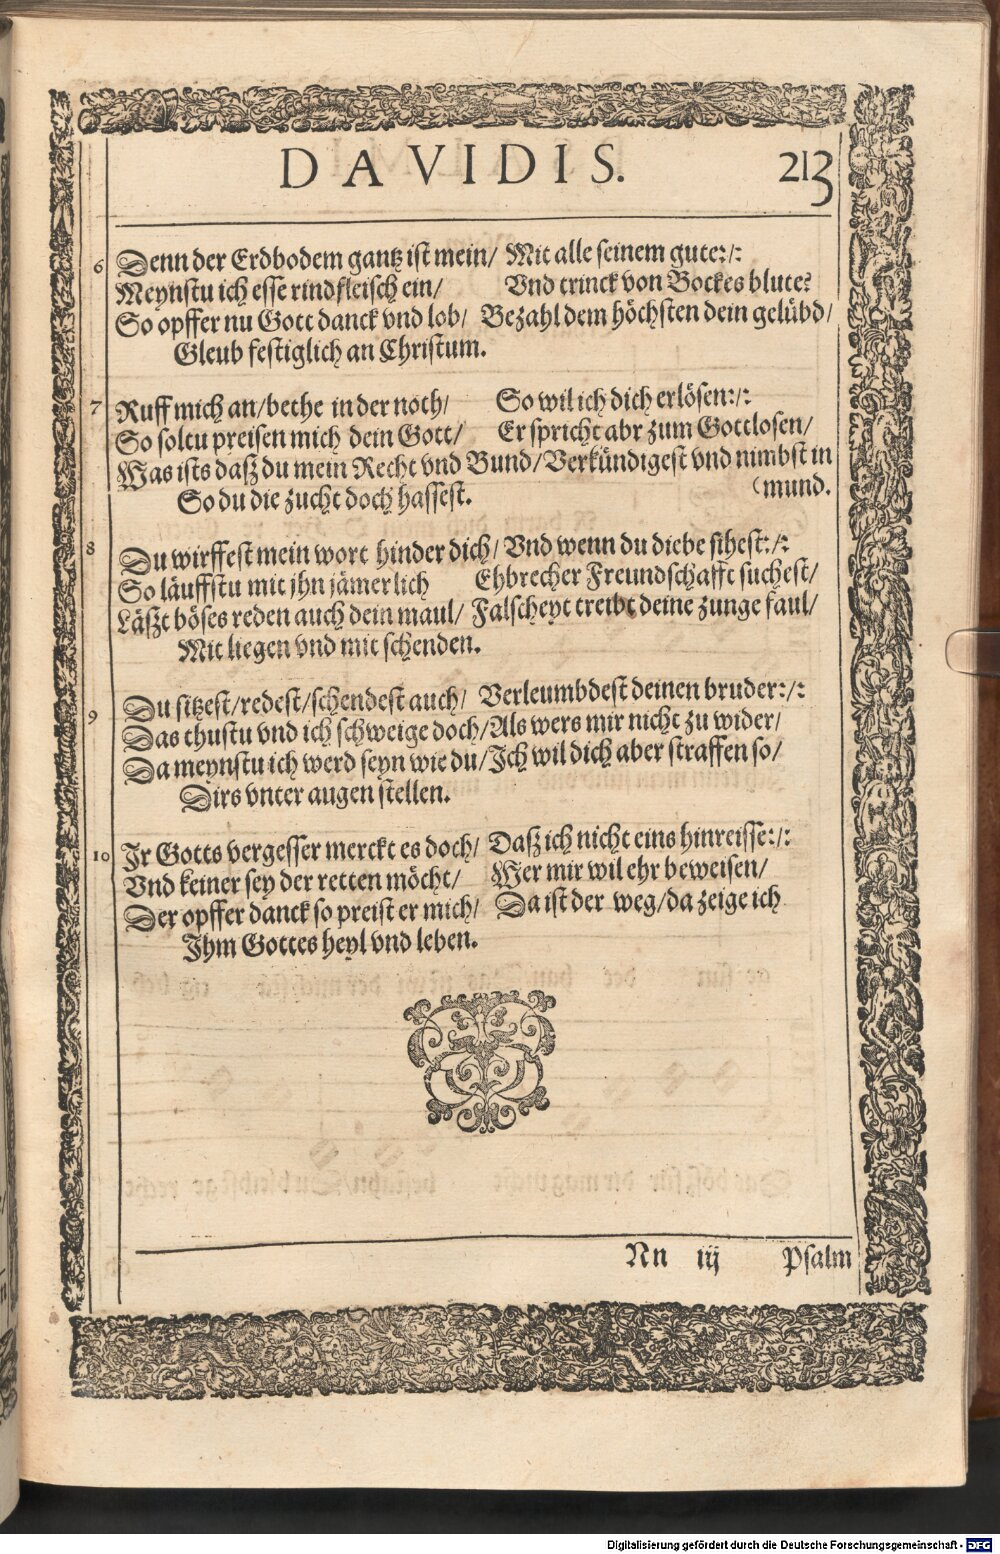 DAVIDIS. 213
6 Denn der Erdbodem gantz ist mein/ Mit alle seinem gute:/:
Meynstu ich esse rindfleisch ein/ Vnd trinck von Bockes blute?
So opffer nu Gott danck vnd lob/ Bezahl dem höchsten dein gelübd/
Gleub festiglich an Christum.
7 Ruff mich an/bethe in der noth/ So wil ich dich erlösen:/:
So soltu preisen mich dein Gott/ Er spricht abr zum Gottlosen/
Was ists daß du mein Recht vnd Bund/Verkündigest vnd nimbst in
So du die zucht doch hassest. (mund.
8 Du wirffest mein wort hinder dich/ Vnd wenn du diebe sihest:/:
So läuffstu mit jhn jämerlich Ehbrecher Freundschafft suchest/
Läßt böses reden auch dein maul/ Falscheyt treibt deine zunge faul/
Mit liegen vnd mit schenden.
9 Du sitzest/redest/schendest auch/ Verleumbdest deinen bruder:/:
Das thustu vnd ich schweige doch/Als wers mir nicht zu wider/
Da meynstu ich werd seyn wie du/Ich wil dich aber straffen so/
Dirs vnter augen stellen.
10 Ir Gotts vergesser merckt es doch/ Daß ich nicht eins hinreisse:/:
Vnd keiner sey der retten möcht/ Wer mir wil ehr beweisen/
Der opffer danck so preist er mich/ Da ist der weg/da zeige ich
Ihm Gottes heyl vnd leben.
Nn iij Psalm
Digitalisierung gefördert durch die Deutsche Forschungsgemeinschaft - DFG